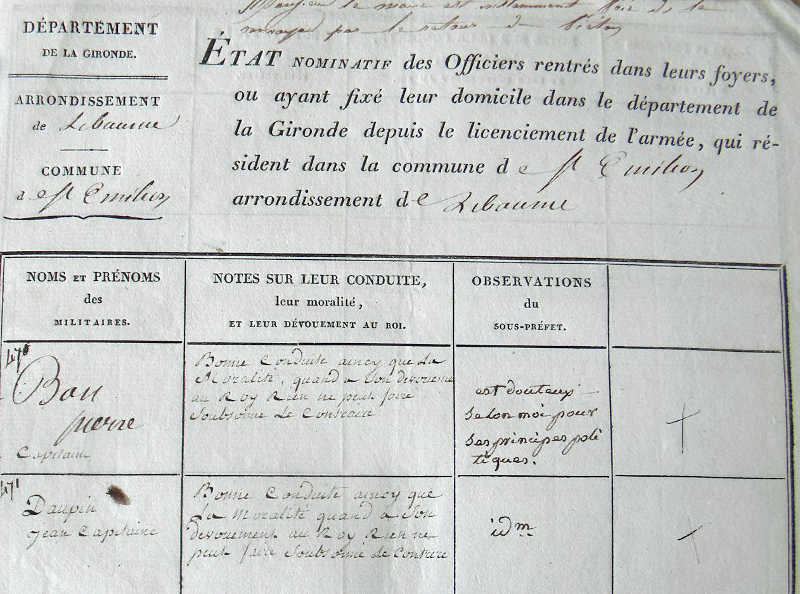 DÉPARTEMENT
DE LA GIRONDE.
ARRONDISSEMENT
de Libourne
COMMUNE
d e St Emilion
le maire est instamment prié de le
par le retour de
ÉTAT NOMINATIF des Officiers rentrés dans leurs foyers,
ou ayant fixé leur domicile dans le département de
la Gironde depuis le licenciement de l'armée, qui ré-
sident dans la commune d e St Emilion
arrondissement de Libourne
NOMS ET PRÉNOMS
des
MILITAIRES.
NOTES SUR LEUR CONDUITE,
leur moralité,
ET LEUR DÉVOUEMENT AU ROI.
OBSERVATIONS
du
SOUS-PRÉFET.
470
Bon
pierre
Capitaine
Bonne Conduite aincy que La
Moralité, quand a Son devouement
au Roy Rien ne peut faire
Soubsonné Le Contraire
est douteux
selon moi pour
ses principes poli
tiques.
+
471
Daupin
Jean Capitaine
Bonne Conduite aincy que
La Moralité quand a Son
devouement au Roy Rien ne
peut faire Soubsonné Le Contrere
idm
+